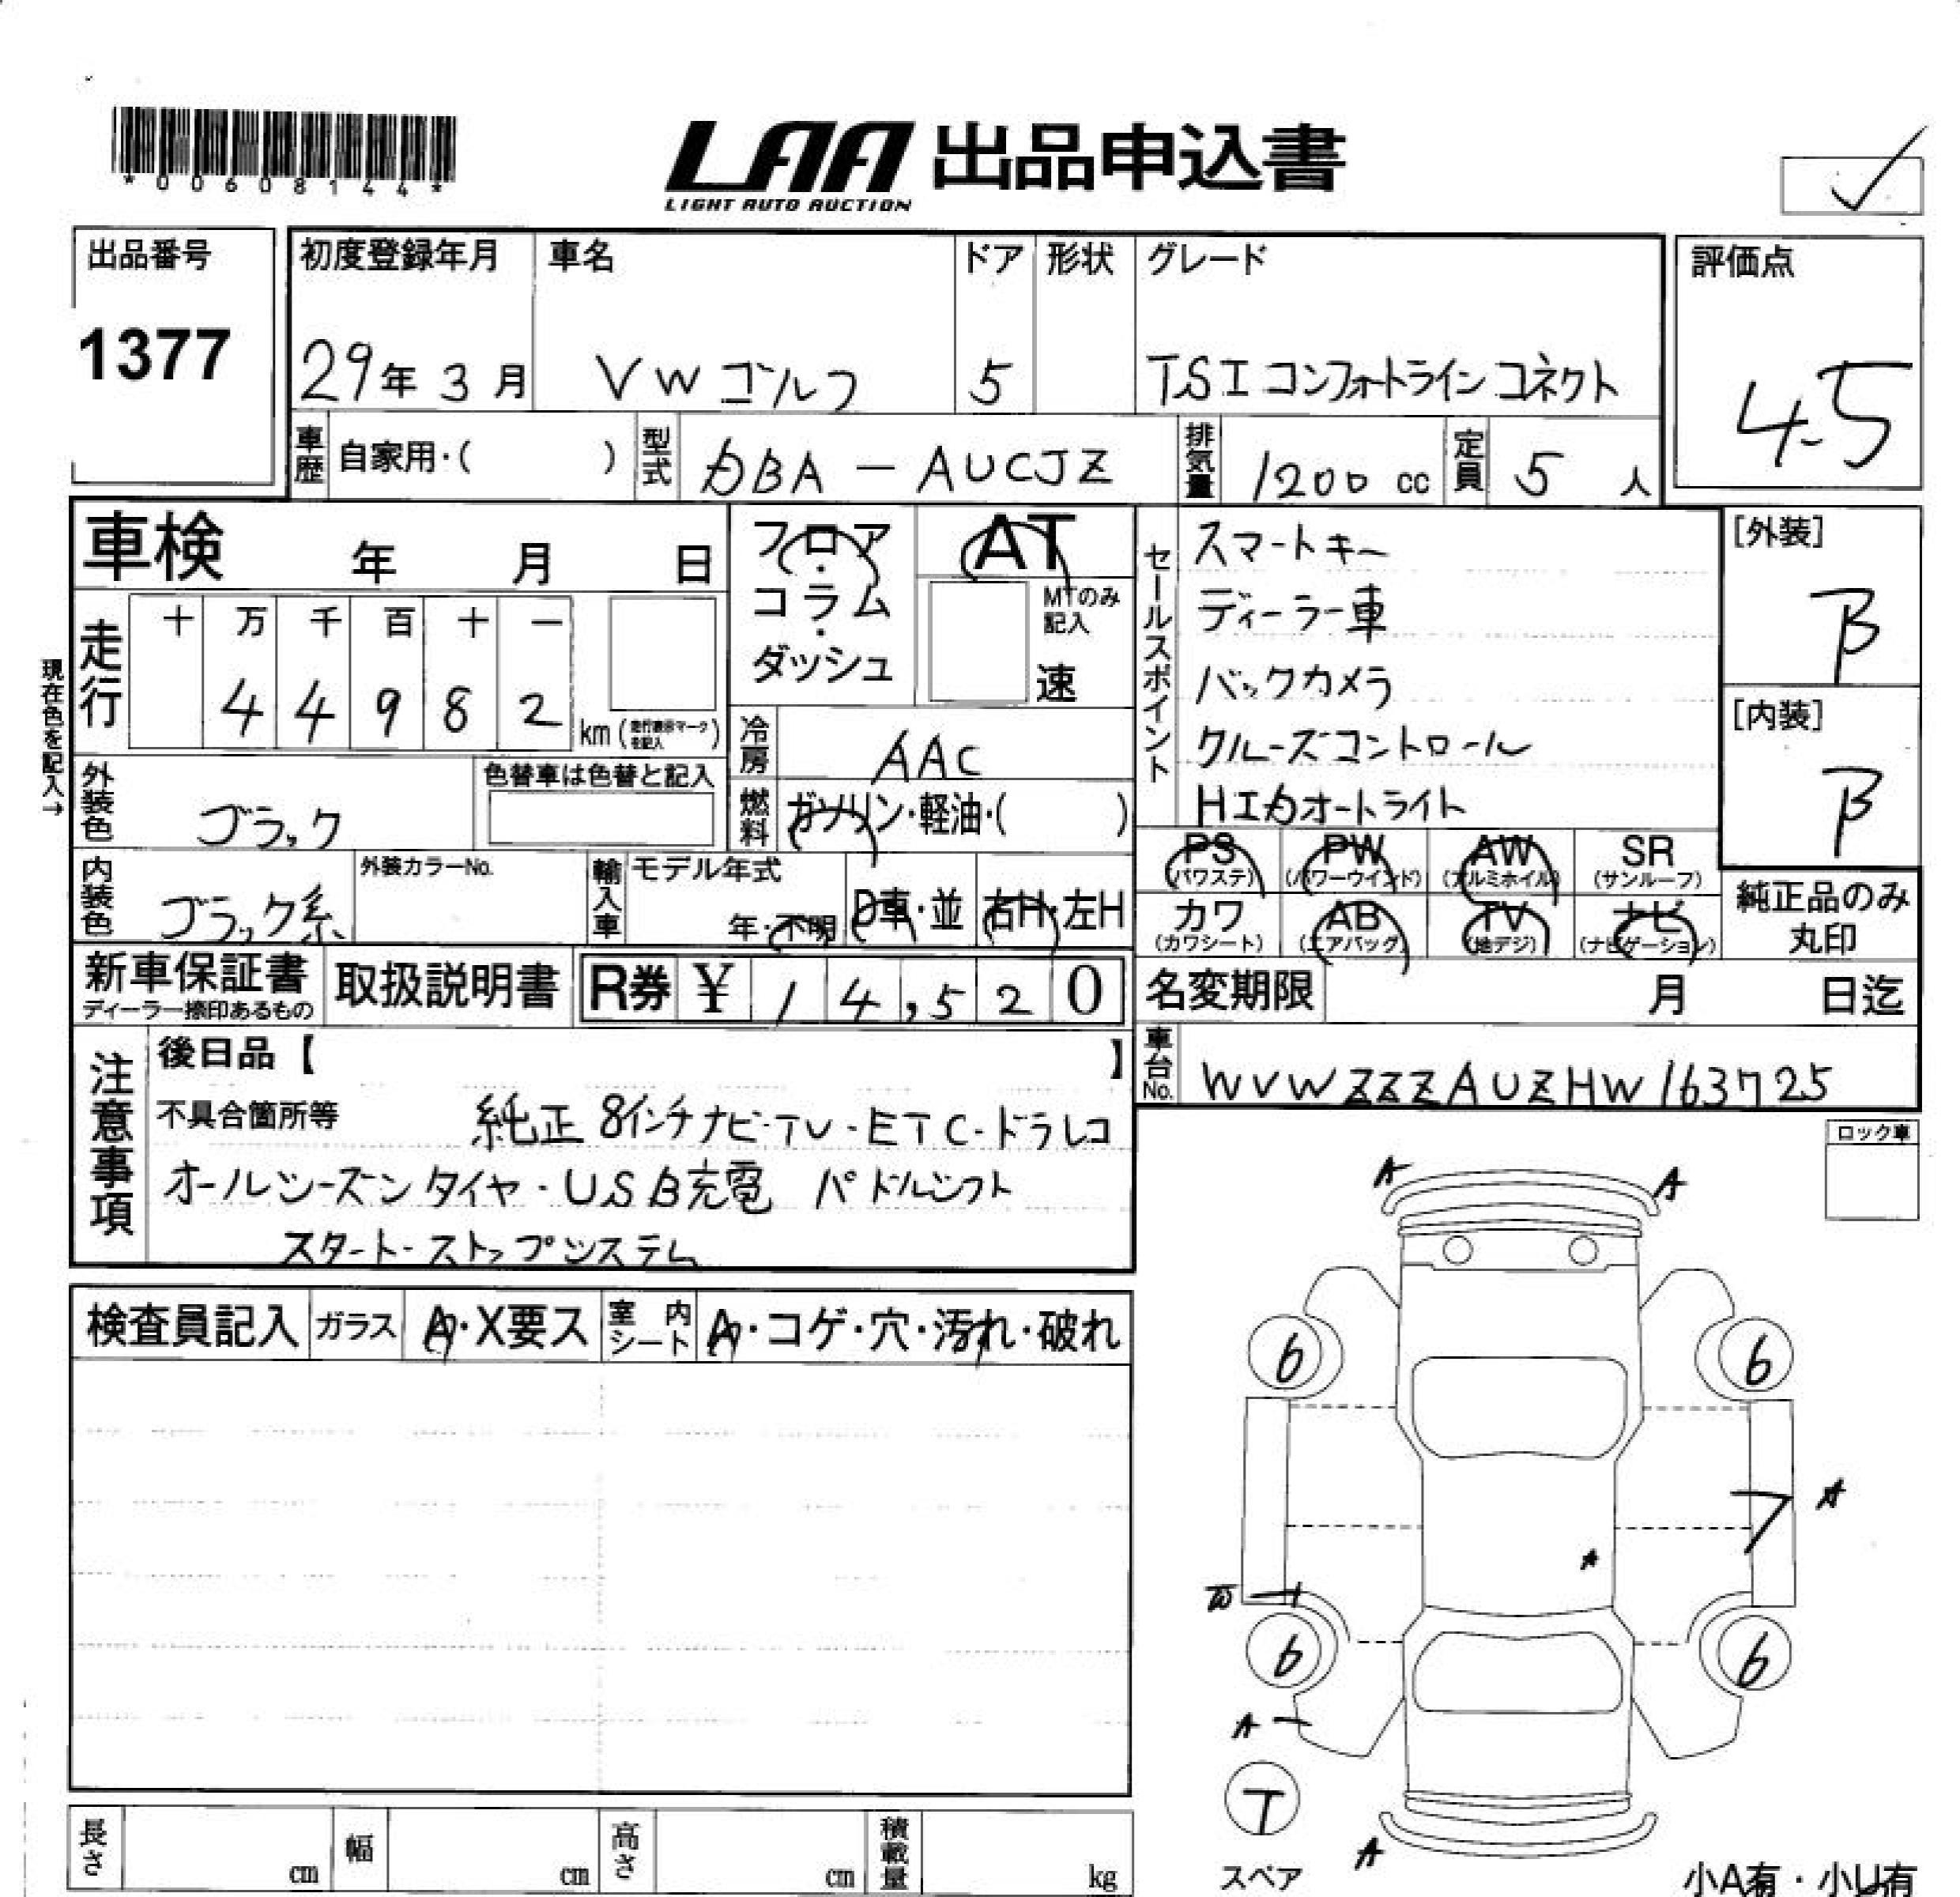 *00608144*
LAA 出品申込書
LIGHT AUTO AUCTION
出品番号
1377
初度登録年月
29年 3月
車名
VW ゴルフ
ドア
5
形状
グレード
TSI コンフォートライン コネクト
評価点
4.5
車歴 自家用・( )
型式 DBA - AUCJZ
排気量 1200 cc
定員 5 人
車検 年 月 日
フロア・コラム・ダッシュ
AT
MTのみ記入
速
セールスポイント
スマートキー
ディーラー車
バックカメラ
クルーズコントロール
HIDオートライト
[外装]
B
[内装]
B
現在色を記入→
走行
十 万 千 百 十 一
4 4 9 8 2 km (走行表示マークを記入)
冷房 AAC
外装色 ブラック
色替車は色替と記入
燃料 ガソリン・軽油・( )
PS (パワステ)
PW (パワーウインド)
AW (アルミホイル)
SR (サンルーフ)
内装色 ブラック系
外装カラーNo.
輸入車 モデル年式
年・不明
D車・並
右H・左H
カワ (カワシート)
AB (エアバッグ)
TV (地デジ)
ナビ (ナビゲーション)
純正品のみ
丸印
新車保証書
ディーラー捺印あるもの
取扱説明書
R券 ¥ 14,520
名変期限 月 日迄
車台No. WVWZZZAUZHW163725
注意事項
後日品【 】
不具合箇所等 純正 8インチナビ・TV・ETC・ドラレコ
オールシーズンタイヤ・USB充電 パドルシフト
スタート・ストップシステム
ロック車
検査員記入 ガラス A・X要ス 室内シート A・コゲ・穴・汚れ・破れ
A A
6 6
A
A
W
6 6
A
T
スペア
A
長さ cm 幅 cm 高さ cm 積載量 kg
小A有・小U有